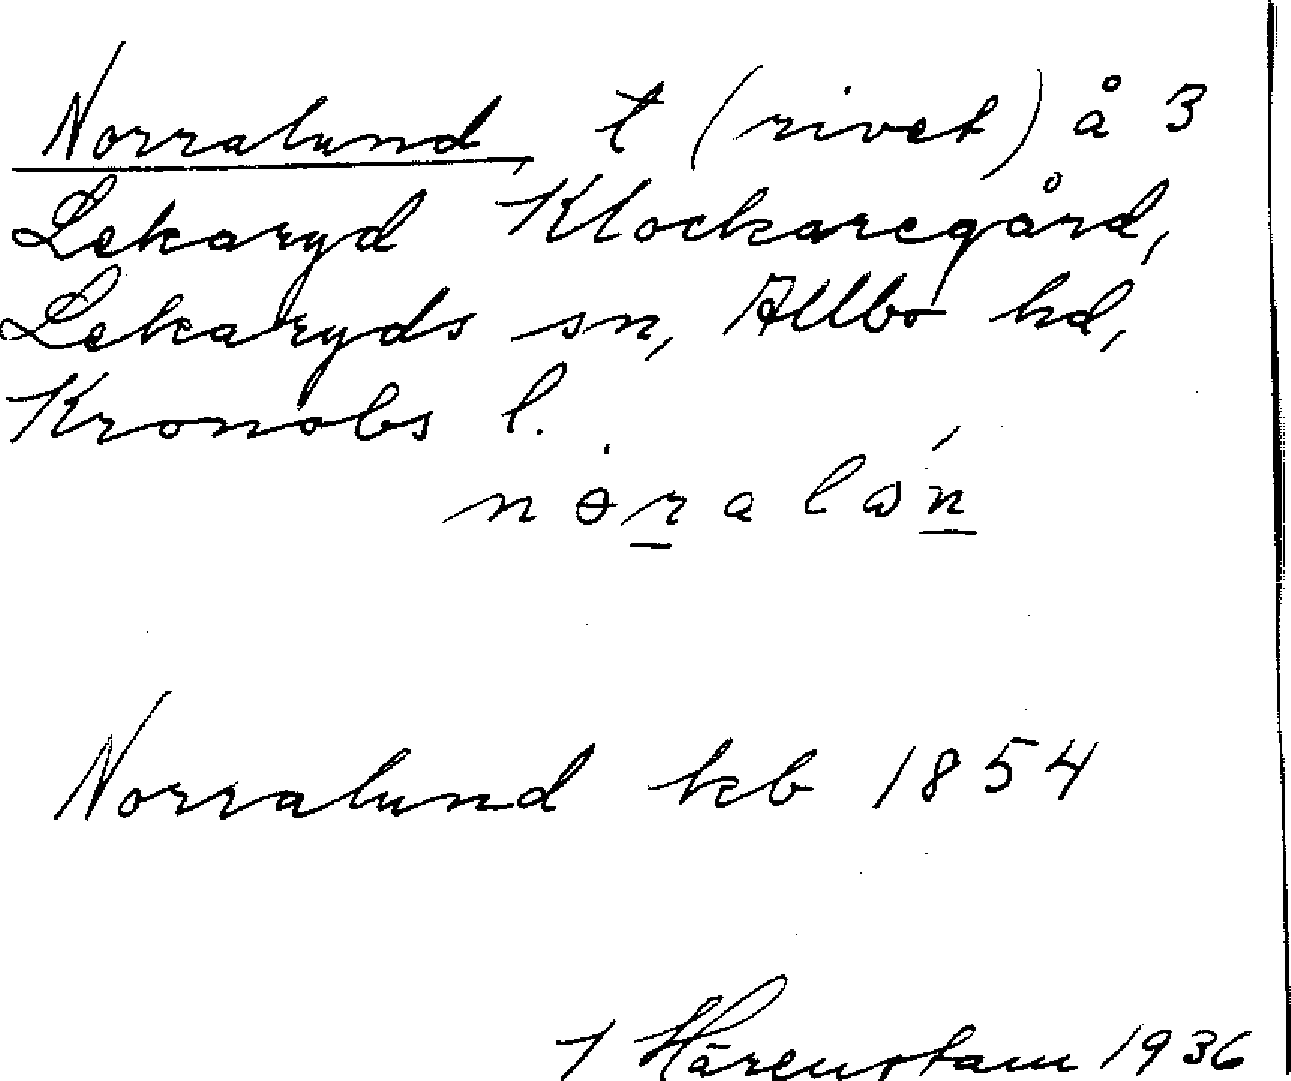 Norralund, t (rivet) å 3
Lekaryd Klockaregård,
Lekaryds sn, Allbo hd,
Kronobs l.
Norralund kb 1854
Härenstam 1936